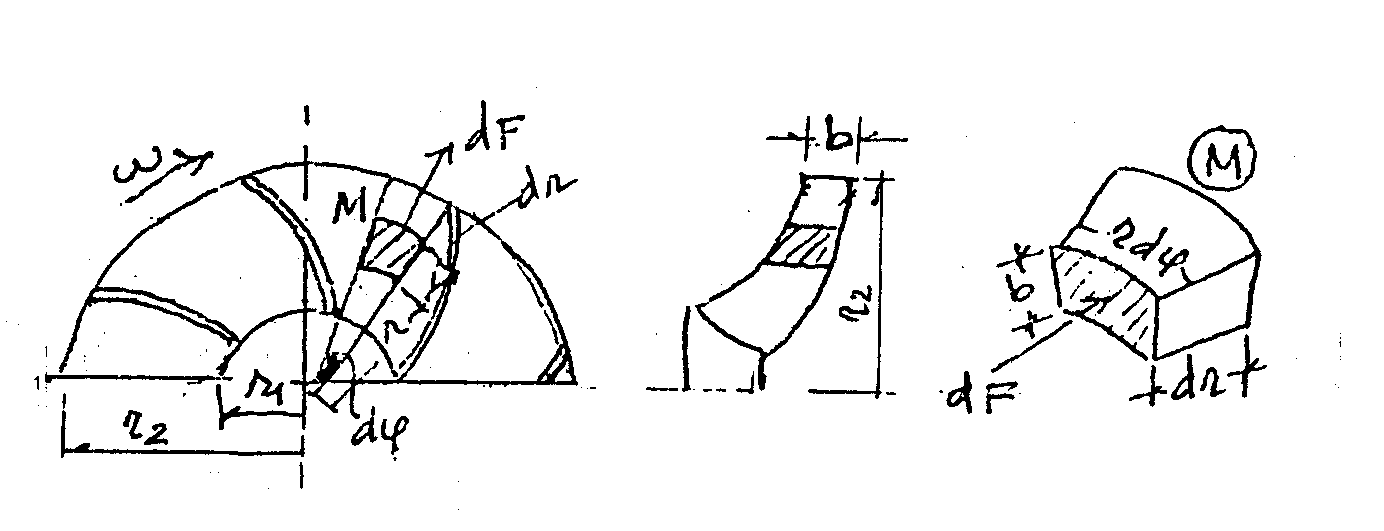 ω
dF
dr
M
r
r₁
r₂
dφ
b
r₂
M
rdφ
b
dF
dr